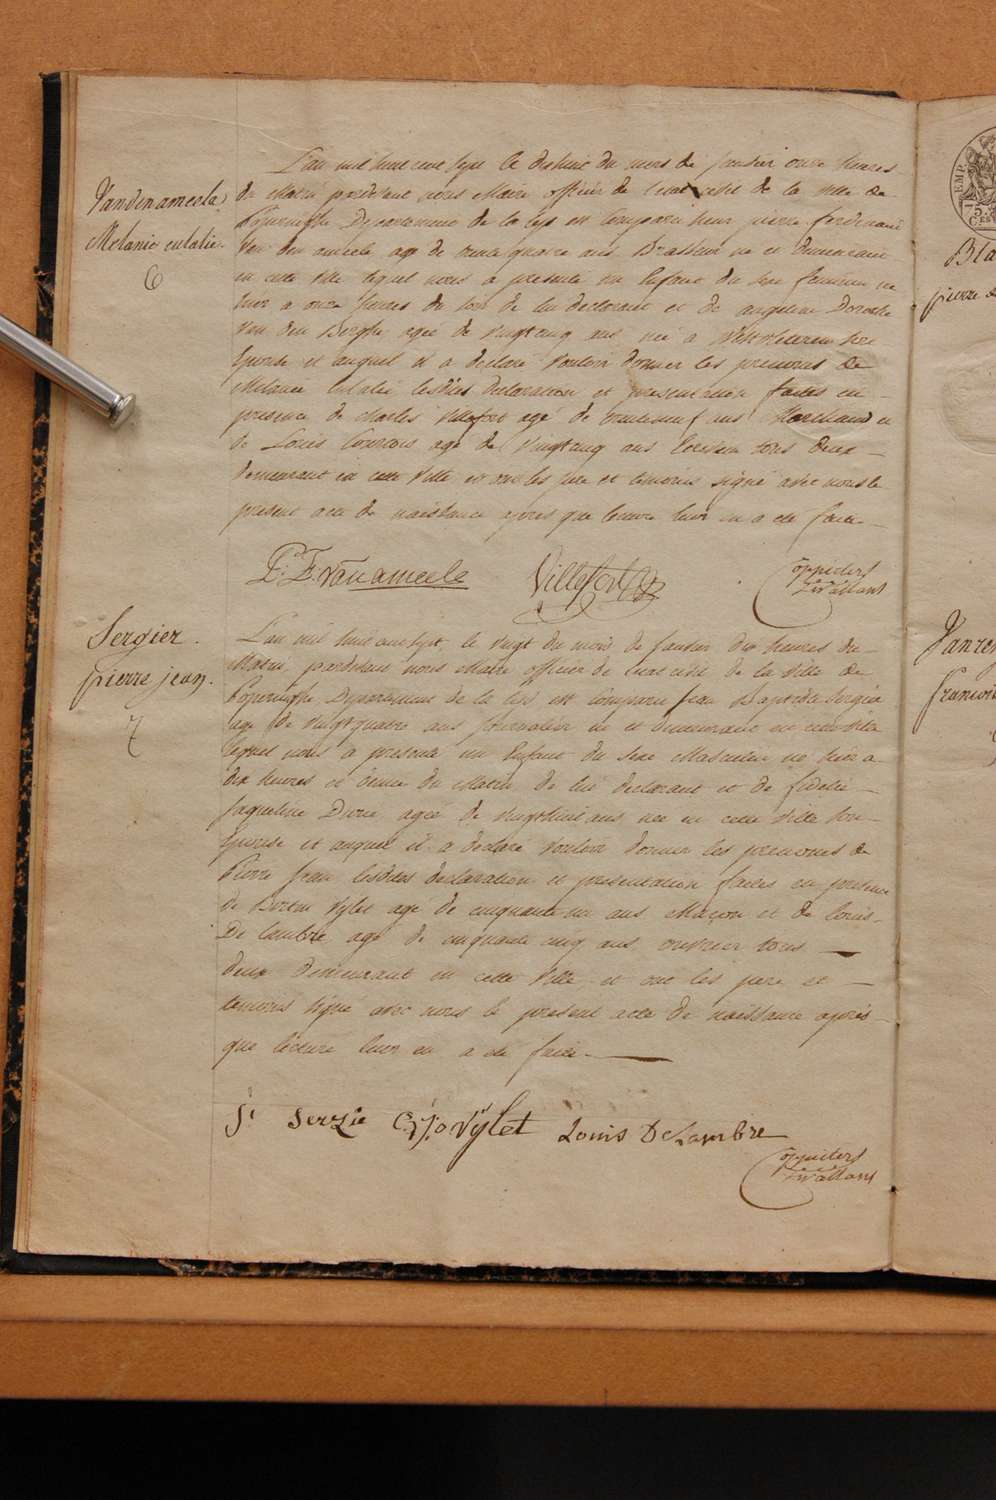 Vandenameele
Melanie eulalie
6
L'an mil huit cent sept le dixhuit du mois de janvier onze heures
du matin pardevant nous Maire officier de l'etat civil de la ville de
Poperinghe Departement de la Lys est comparu sieur pierre ferdinand
Van den ameele agé de trente quatre ans Brasseur né et demeurant
en cette ville lequel nous a presenté un Enfant du sexe feminin né
hier a onze heures du soir de lui declarant et de angeline Dorothe
Van den Berghe agée de vingtcinq ans née a son
Epouse et auquel il a declaré vouloir donner les prenoms de
Melanie Eulalie lesdites declaration et presentation faites en
presence de Charles Villefort agé de trenteneuf ans Marchand et
de Louis Courtois agé de vingtcinq ans tous deux
demeurant en cette ville et ont les pere et temoins signé avec nous le
present acte de naissance apres que lecture leur en a été faite
P. F. Vanameele Villefort
Sergier
pierre jean
7
L'an mil huit cent sept, le vingt du mois de janvier dix heures du
Matin pardevant nous Maire officier de l'etat civil de la ville de
Poperinghe Departement de la Lys est comparu jean Baptiste Sergier
agé de vingtquatre ans journalier né et demeurant en cette ville
lequel nous a presenté un Enfant du sexe Masculin né hier a
dix heures et demie du Matin de lui declarant et de fidelie
Jaqueline agée de vingthuit ans née en cette ville son
Epouse et auquel il a declaré vouloir donner les prenoms de
Pierre Jean lesdites declaration et presentation faites en presence
de Vylet agé de cinquante un ans Maçon et de louis
De Lambre agé de cinquante cinq ans ouvrier tous
deux demeurant en cette ville et ont les pere et
temoins signé avec nous le present acte de naissance après
que lecture leur en a été faite
Serzie Vylet Louis DeLambre
EMP.
Bla
pierre
Vanre
francoi